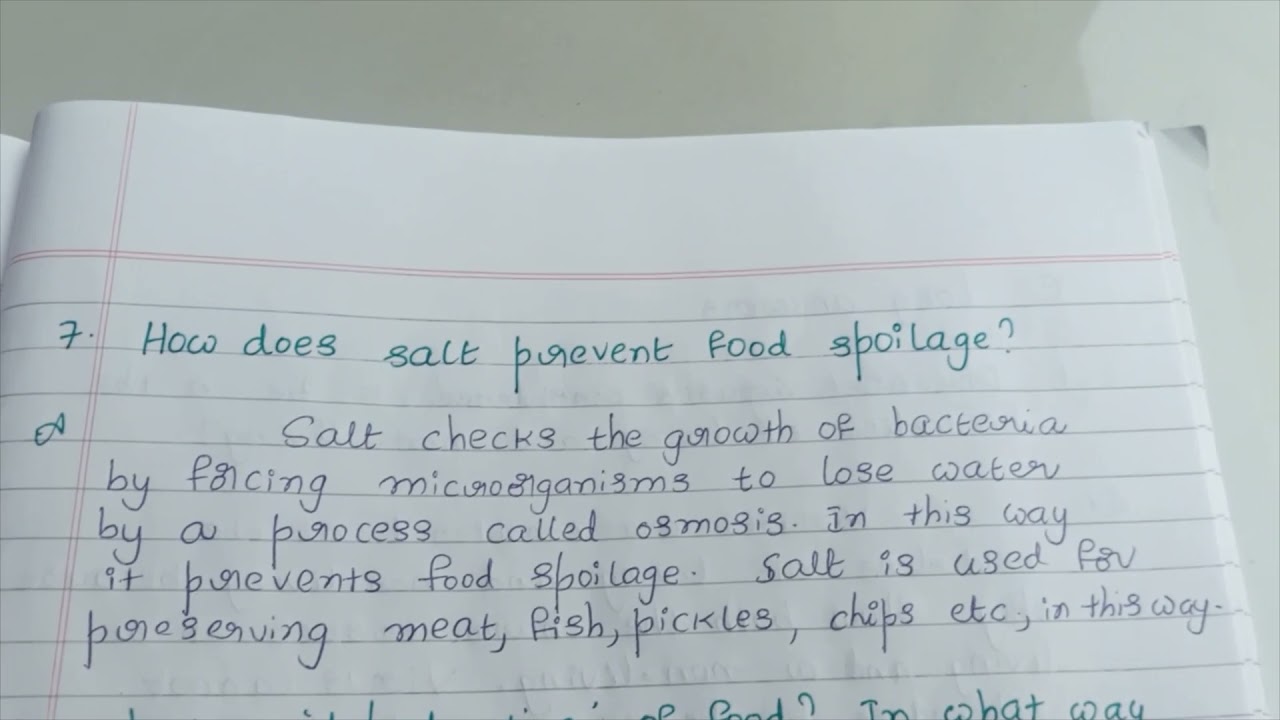 7. How does salt prevent food spoilage?
Salt checks the growth of bacteria
by forcing microorganisms to lose water
by a process called osmosis. In this way
it prevents food spoilage. Salt is used for
preserving meat, fish, pickles, chips etc; in this way.
of food? In what way